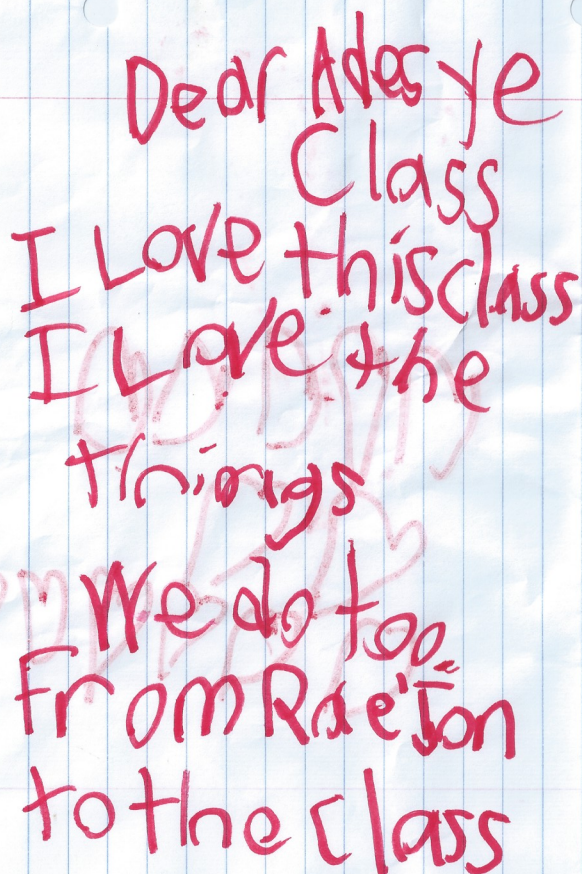 Dear Adesye
Class
I Love this class
I Love the
things
We do too.
From Rae'Jon
to the Class